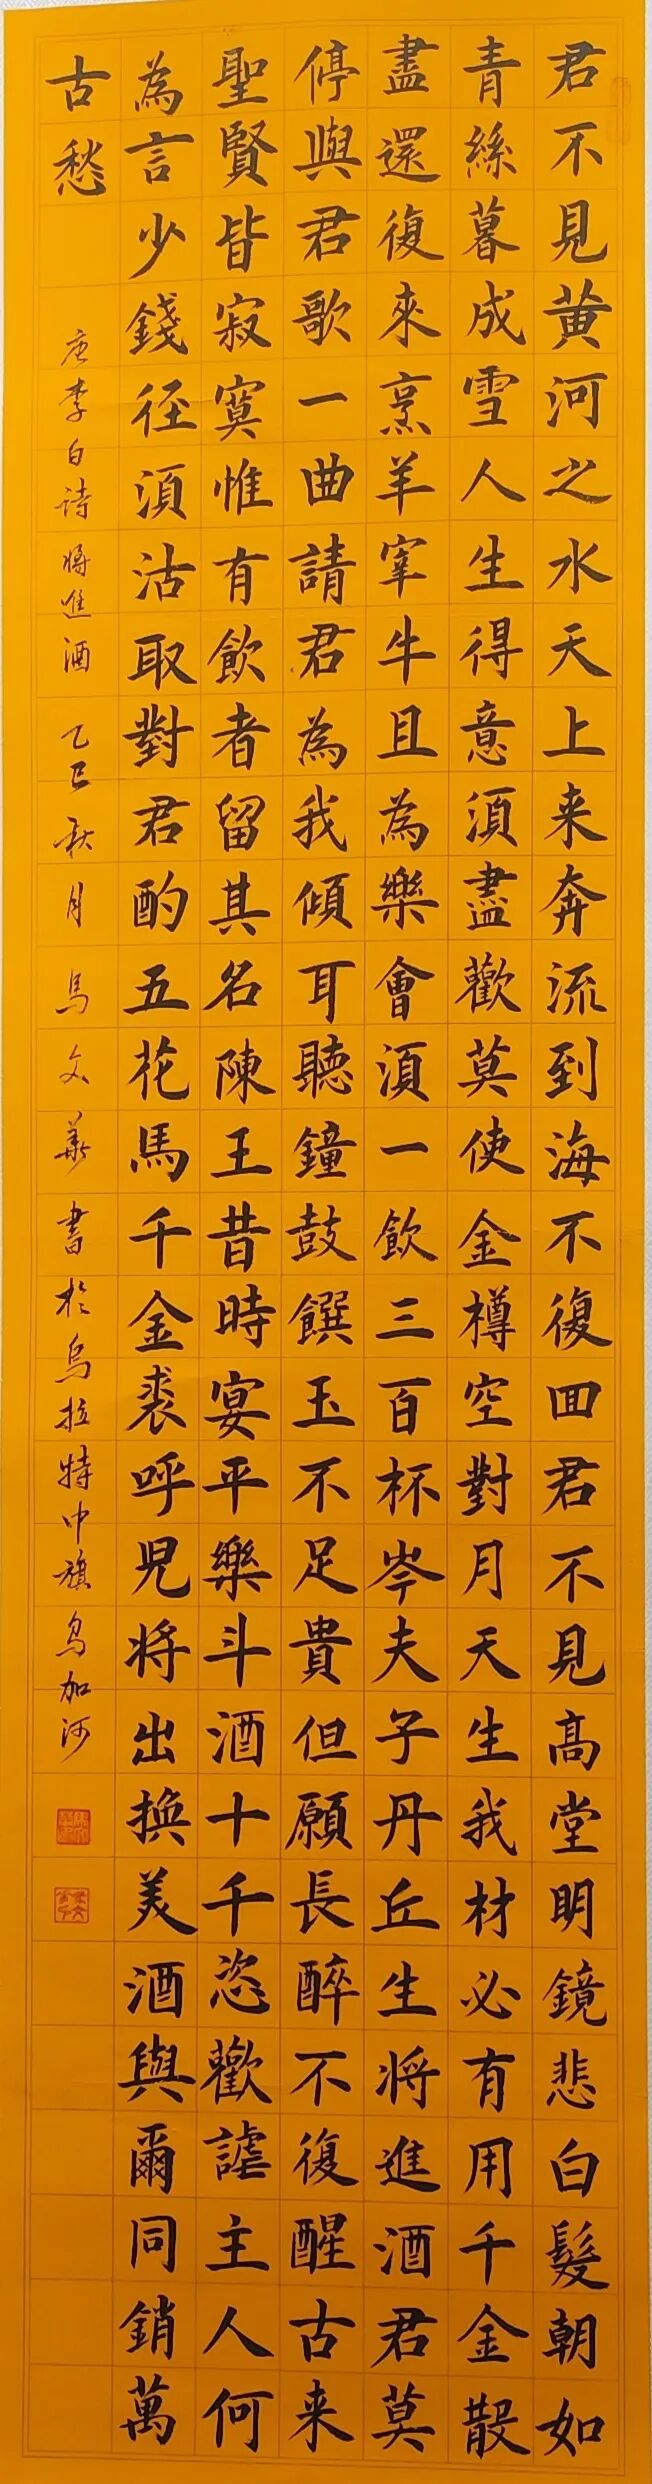 君不見黃河之水天上来奔流到海不復回君不見高堂明鏡悲白髮朝如
青絲暮成雪人生得意須盡歡莫使金樽空對月天生我材必有用千金散
盡還復來烹羊宰牛且為樂會須一飲三百杯岑夫子丹丘生將進酒君莫
停與君歌一曲請君為我傾耳聽鐘鼓饌玉不足貴但願長醉不復醒古来
聖賢皆寂寞惟有飲者留其名陳王昔時宴平樂斗酒十千恣歡謔主人何
為言少錢徑須沽取對君酌五花馬千金裘呼児將出換美酒與爾同銷萬
古愁
唐李白詩將進酒乙巳秋月馬文華書於烏拉特中旗烏加河